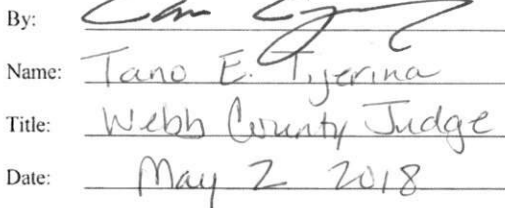 By:
Name: Tano E. Tijerina
Title: Webb County Judge
Date: May 2 2018